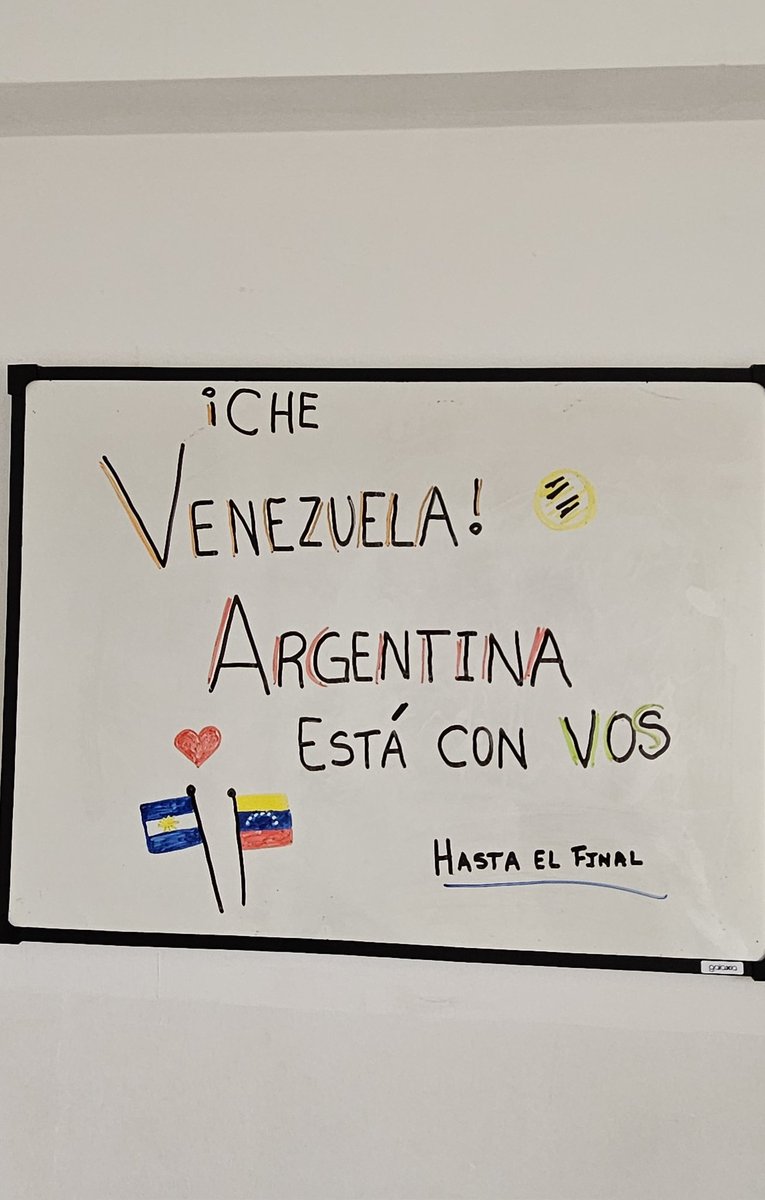 ¡CHE
VENEZUELA!
ARGENTINA
ESTÁ CON VOS
HASTA EL FINAL
galaxia